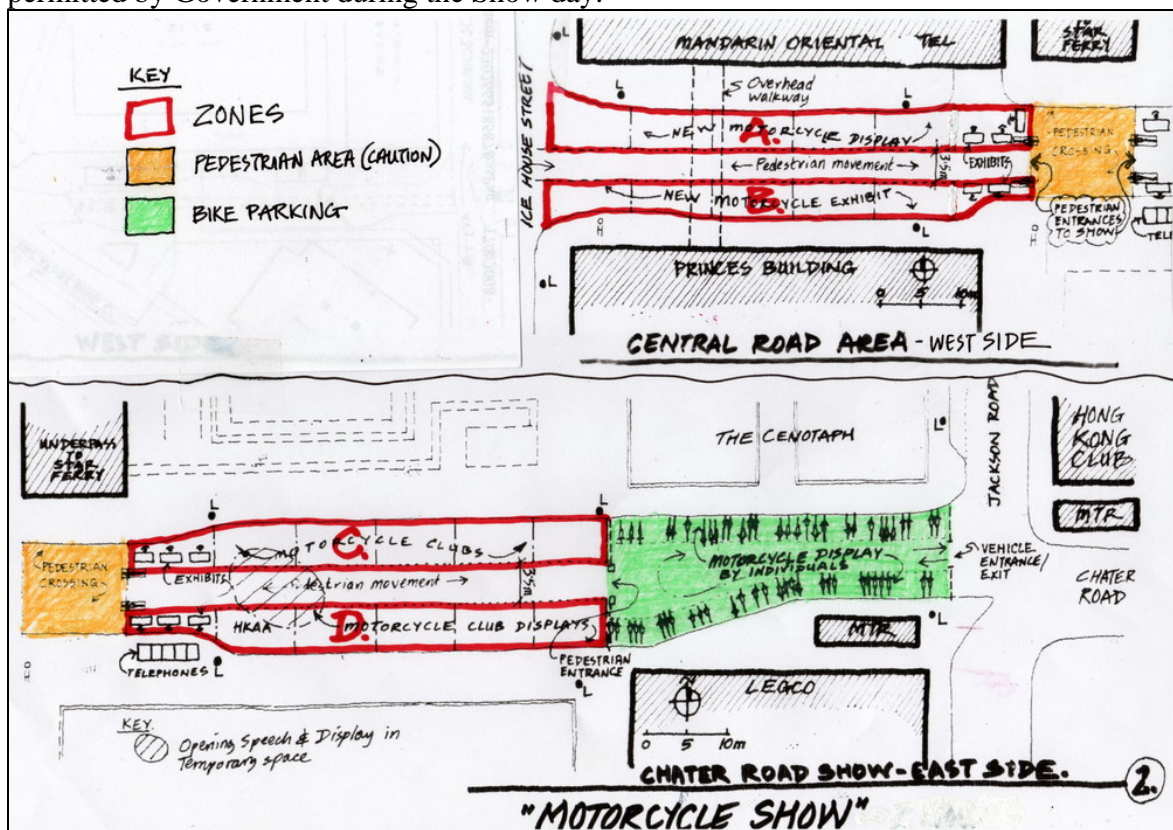 permitted by Government during the Show day.
KEY
ZONES
PEDESTRIAN AREA (CAUTION)
BIKE PARKING
ICE HOUSE STREET
L
MANDARIN ORIENTAL TEL
TO
STAR
FERRY
Overhead
walkway
L
L
A.
NEW MOTORCYCLE DISPLAY
Pedestrian movement
3.5m
EXHIBITS
B.
NEW MOTORCYCLE EXHIBIT
PEDESTRIAN
CROSSING
PEDESTRIAN
ENTRANCES
TO SHOW
L
L
PRINCES BUILDING
0 5 10m
CENTRAL ROAD AREA - WEST SIDE
WEST SIDE
UNDERPASS
TO
STAR
FERRY
THE CENOTAPH
L
JACKSON ROAD
HONG
KONG
CLUB
MTR
L
L
PEDESTRIAN
CROSSING
C.
MOTORCYCLE CLUBS
EXHIBITS
Pedestrian movement
3.5m
HKAA
D.
MOTORCYCLE CLUB DISPLAYS
MOTORCYCLE DISPLAY
BY INDIVIDUALS
VEHICLE
ENTRANCE/
EXIT
CHATER
ROAD
MTR
L
TELEPHONES
L
PEDESTRIAN
ENTRANCE
L
LEGCO
N
0 5 10m
KEY
Opening Speech & Display in
Temporary space
CHATER ROAD SHOW-EAST SIDE.
2.
"MOTORCYCLE SHOW"